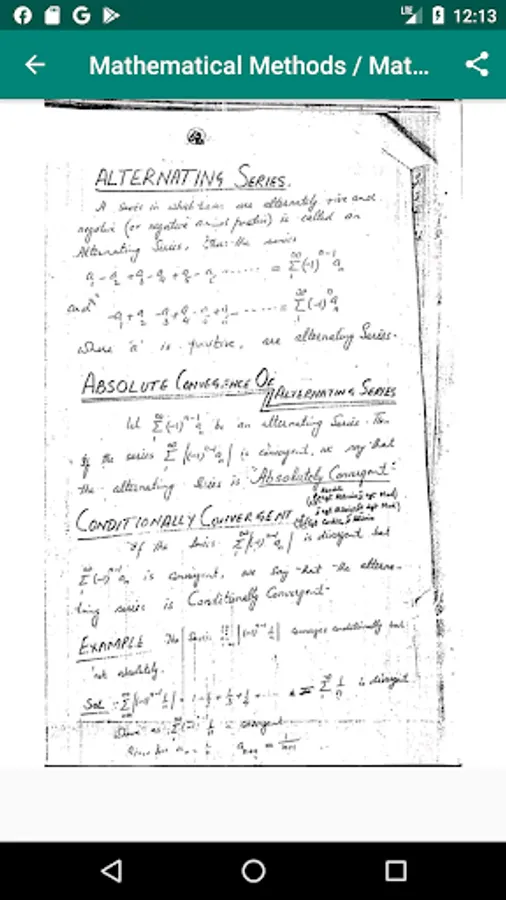 12:13
Mathematical Methods / Mat...
ALTERNATING SERIES.
A series in which terms are alternately +ive and
negative (or negative and positive) is called an
Alternating Series. Thus the series
a₁ - a₂ + a₃ - a₄ + a₅ - a₆ ...... = Σ₁^∞ (-1)^(n-1) aₙ
and
-a₁ + a₂ - a₃ + a₄ - ...... = Σ₁^∞ (-1)^n aₙ
where 'a' is positive, are alternating Series.
ABSOLUTE CONVERGENCE OF ALTERNATING SERIES
Let Σ₁^∞ (-1)^(n-1) aₙ be an alternating Series. Then
If the series Σ₁^∞ |(-1)^(n-1) aₙ| is convergent, we say that
the alternating Series is "Absolutely Convergent."
CONDITIONALLY CONVERGENT
If the Series Σ₁^∞ |(-1)^(n-1) aₙ| is divergent but
Σ₁^∞ (-1)^(n-1) aₙ is convergent, we say that the alterna-
ting series is Conditionally Convergent
EXAMPLE The Series converges conditionally but
not absolutely.
Sol: Σ |(-1)^(n-1) 1/n| = 1 + 1/2 + 1/3 + 1/4 + ... = Σ₁^∞ 1/n is divergent
Σ₁^∞ (-1)^(n-1) 1/n is convergent
aₙ = 1/n aₙ₊₁ = 1/(n+1)